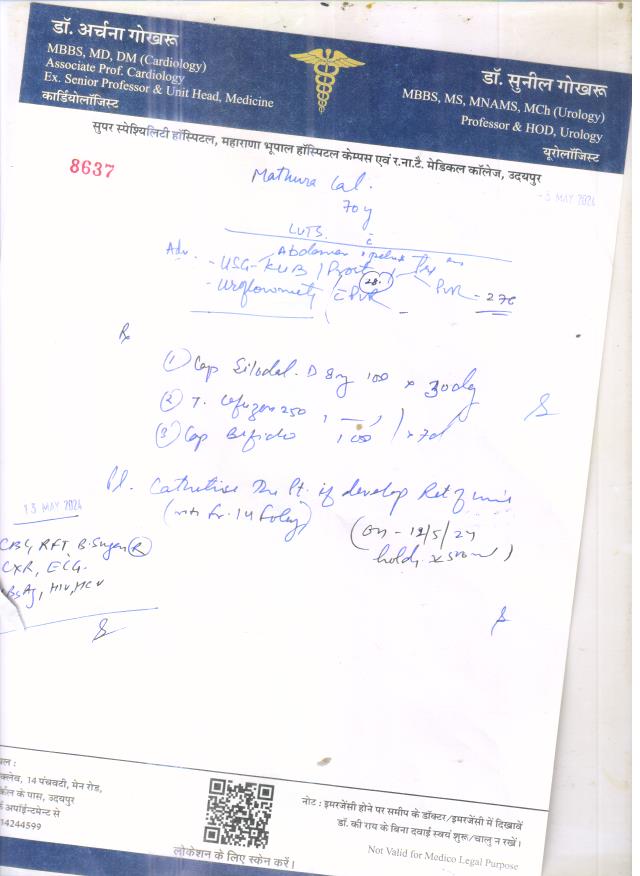 डॉ. अर्चना गोखरू
MBBS, MD, DM (Cardiology)
Associate Prof. Cardiology
Ex. Senior Professor & Unit Head, Medicine
कार्डियोलॉजिस्ट
डॉ. सुनील गोखरू
MBBS, MS, MNAMS, MCh (Urology)
Professor & HOD, Urology
यूरोलॉजिस्ट
सुपर स्पेश्यिलिटी हॉस्पिटल, महाराणा भूपाल हॉस्पिटल केम्पस एवं र.ना.टै. मेडिकल कॉलेज, उदयपुर
8637
- 3 MAY 2024
Mathura Lal.
70 y
LUTS. c̄
Adv. Abdomen
- USG - KUB / Prost
28.
PVR - 276
- Uroflowmetry c̄ PVR
Rx
① Cap Silodal. D 8mg 100 x 30 day
② T. 250
③ Cap x 7d
Catheterise The Pt. if develop Ret of
Fr. 14 Foley)
(on - 12/5/24
13 MAY 2024
CBC, RFT B. Sugar Ⓡ
CXR, ECG.
HIV, HCV
क्लेव, 14 पंचवटी, मेन रोड,
के पास, उदयपुर
अपॉईन्टमेन्ट से
14244599
लोकेशन के लिए स्केन करें।
नोट : इमरजेंसी होने पर समीप के डॉक्टर/इमरजेंसी में दिखावें
डॉ. की राय के बिना दवाई स्वयं शुरू/चालु न रखें।
Not Valid for Medico Legal Purpose